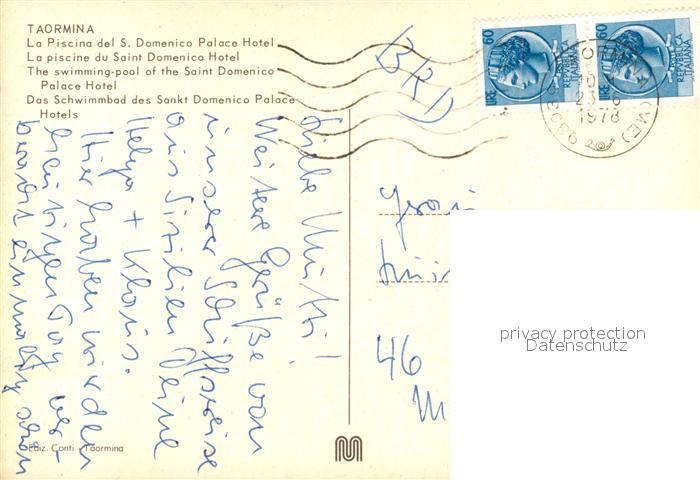 TAORMINA
La Piscina del S. Domenico Palace Hotel
La piscine du Saint Domenico Hotel
The swimming-pool of the Saint Domenico
Palace Hotel
Das Schwimmbad des Sankt Domenico Palace
Hotels
BRD
LIRE 60
REPUBBLICA
ITALIANA
LIRE 60
REPUBBLICA
ITALIANA
(ME)
1978
98039
Liebe Mutti!
Weitere Grüße von
unserer Schiffsreise
aus Sizilien Deine
Helga + Klaus.
Hier haben wir den
heutigen Tag ver-
bracht einmalig schön
46
M
privacy protection
Datenschutz
Ediz. Conti - Taormina